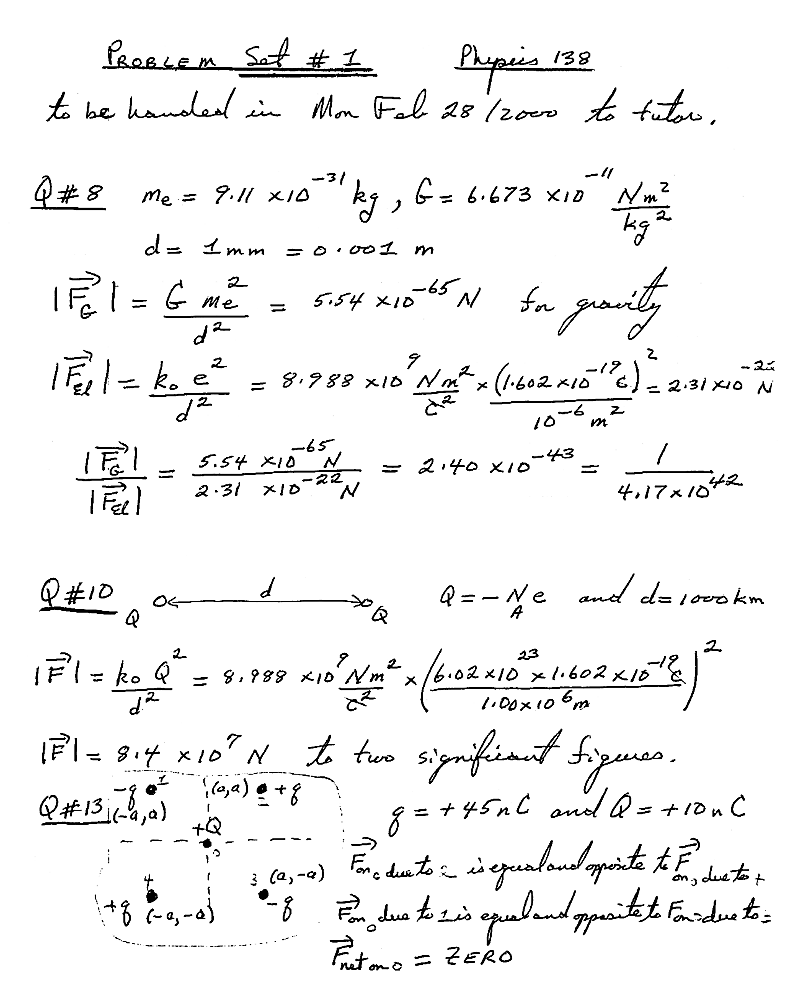 PROBLEM Set # 1 Physics 138
to be handed in Mon Feb 28 /2000 to tutor.
Q#8 me = 9.11 ×10^-31 kg, G = 6.673 ×10^-11 Nm^2/kg^2
d = 1mm = 0.001 m
|F_G| = G me^2/d^2 = 5.54 ×10^-65 N for gravity
|F_El| = k_o e^2/d^2 = 8.988 ×10^9 Nm^2/C^2 × (1.602×10^-19 C)^2/10^-6 m^2 = 2.31×10^-22 N
|F_G|/|F_El| = 5.54 ×10^-65 N/2.31 ×10^-22 N = 2.40 ×10^-43 = 1/4.17×10^42
Q#10 Q d Q Q = -N_A e and d=1000km
|F| = k_o Q^2/d^2 = 8.988 ×10^9 Nm^2/C^2 × (6.02×10^23 ×1.602×10^-19 C/1.00×10^6 m)^2
|F| = 8.4 ×10^7 N to two significant figures.
Q#13 -q 1 (-a,a) (a,a) +q q = +45nC and Q = +10nC
+Q
F on due to is equal and opposite to F on due to
4 +q (-a,-a) 3 (a,-a) -q
F on due to 1 is equal and opposite to F on due to
F net on 0 = ZERO